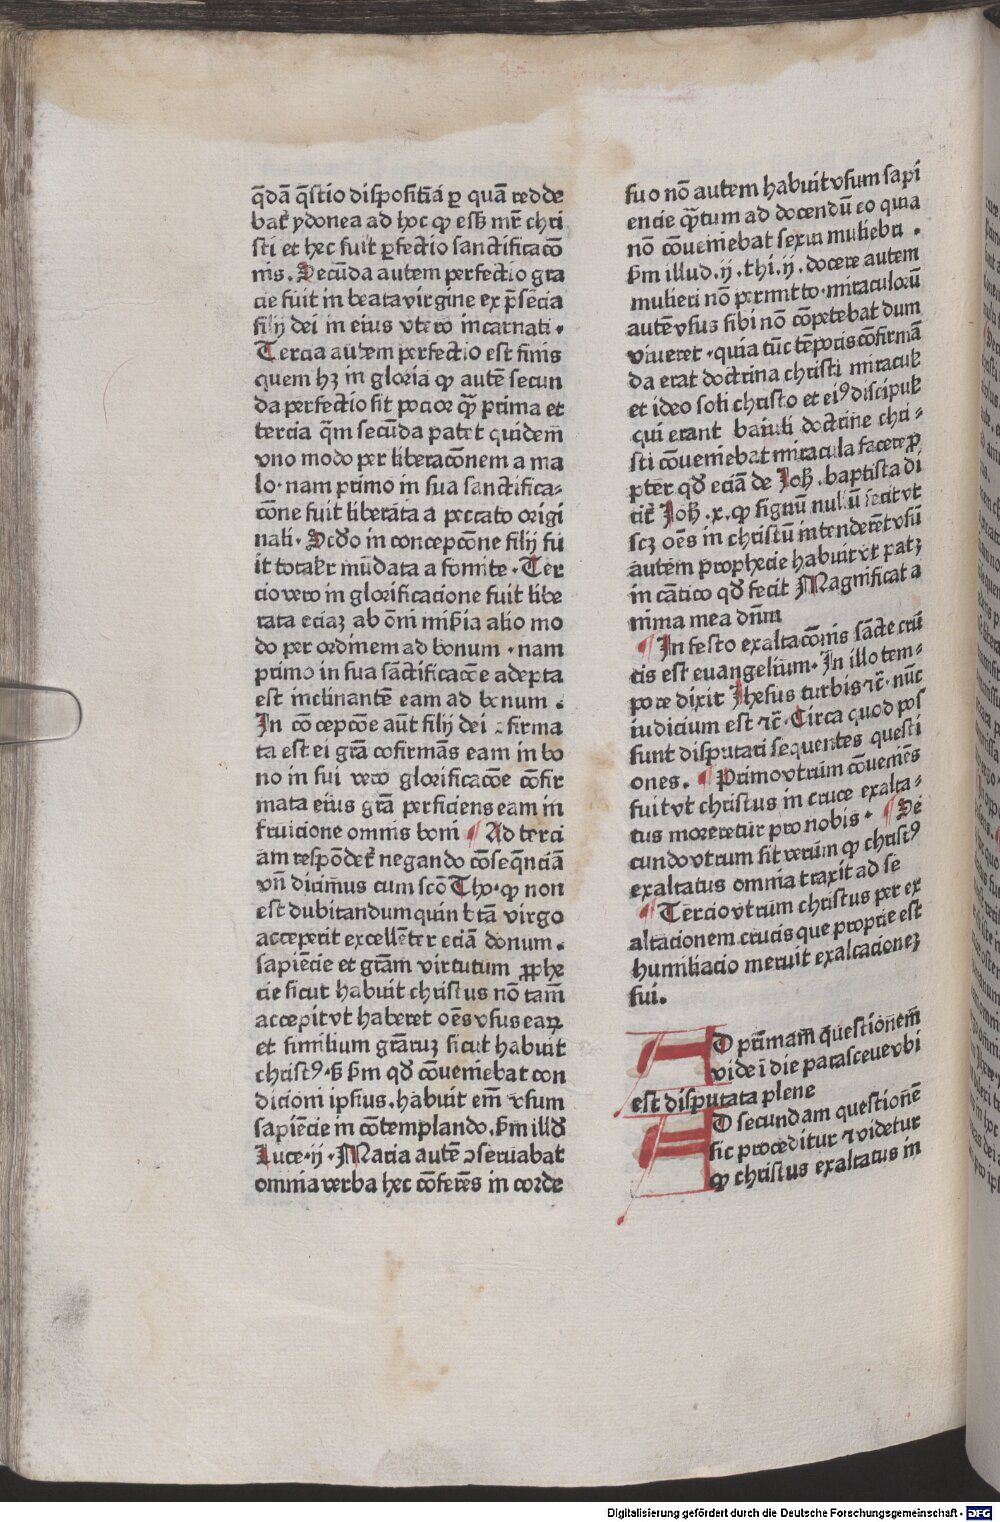 q̄dā q̄stio dispositīa ꝑ quā redde
bat᷑ ydonea ad hoc ꝙ esß mr̄ chri
sti et hec fuit ꝑfectio sanctificacō
nis. Secūda autem perfectio gra
cie fuit in beata virgine ex p̄sēcia
filij dei in eius vtero incarnati.
Tercia autem perfectio est finis
quem hꝫ in gloria ꝙ autē secun
da perfectio sit pocior q̄ꝫ prima et
tercia q̄m secūda patet quidem̄
vno modo per liberacōnem a ma
lo. nam primo in sua sanctifica⸗
cōne fuit liberata a peccato origi
nali. Scd̄o in concepcōne filij fu
it totalr̄ mūdata a fomite. Ter
cio vero in glorificacione fuit libe
rata eciaꝫ ab ōni mis̄ia alio mo
do per ordinem ad bonum. nam
primo in sua sāctificacōe adepta
est inclinantē eam ad bonum.
In cōcepcōe aūt filij dei ꝯfirma
ta est ei grā cōfirmās eam in bo
no in sui vero glorificacōe cōfir
mata eius grā perficiens eam in
fruicione omnis boni ¶ Ad terci
am respōdet᷑ negando cōseq̄nciā
vn̄ dicimus cum scō Tho. ꝙ non
est dubitandum quin b̄tā virgo
acceperit excellēter eciā donum.
sapiēcie et grām virtutum ꝓphe
cie sicut habuit christus nō tam̄
accepit vt haberet oēs vsus eaꝝ
et similium grāruꝫ sicut habuit
christꝰ. s̄ s̄m qd̄ cōueniebat con
dicioni ipsius. habuit em̄ vsum
sapiēcie in cōtemplando. s̄m illd̄
Luce. ij. Maria autē ꝯseruabat
omnia verba hec cōferēs in corde
suo nō autem habuit vsum sapi
encie q̄ꝫtum ad docendū eo quia
nō cōueniebat sexui muliebri.
s̄m illud. ij. thi. ij. docere autem
mulieri nō permitto. miraculorū
autē vsus sibi nō cōpetebat dum
viueret. quia tūc tēporis cōfirmā
da erat doctrina christi miraculꝭ
et ideo soli christo et eiꝰ discipulꝭ
qui erant baiuli doctrine chri⸗
sti cōueniebat miracula facere ꝓ
pter qd̄ eciā de Joh̄. baptista di
cit᷑ Joh̄. x. ꝙ signū nullū fecit vt
scꝫ oēs in christū intenderēt vsū
autem prophecie habuit vt patꝫ
in cātico qd̄ fecit Magnificat a
nima mea dn̄m
¶ In festo exaltacōnis sācte cru
cis est euangelium. In illo tem⸗
pore dixit Jhesus turbis ⁊c̄. nūc
iudicium est ⁊c̄. Circa quod pos
sunt disputari sequentes questi
ones. ¶ Primo vtrum cōueniēs
fuit vt christus in cruce exalta⸗
tus moreretur pro nobis. ¶ Se
cundo vtrum sit verūm ꝙ christꝰ
exaltatus omnia traxit ad se
¶ Tercio vtrum christus per ex
altacionem crucis que proprie est
humiliacio meruit exaltacioneꝫ
sui.
AD primam̄ questionem̄
vide ī die parasceue vbi
est disputata plene
AD secundam questionē
sic proceditur ⁊ videtur
ꝙ christus exaltatus in
Digitalisierung gefördert durch die Deutsche Forschungsgemeinschaft - DFG